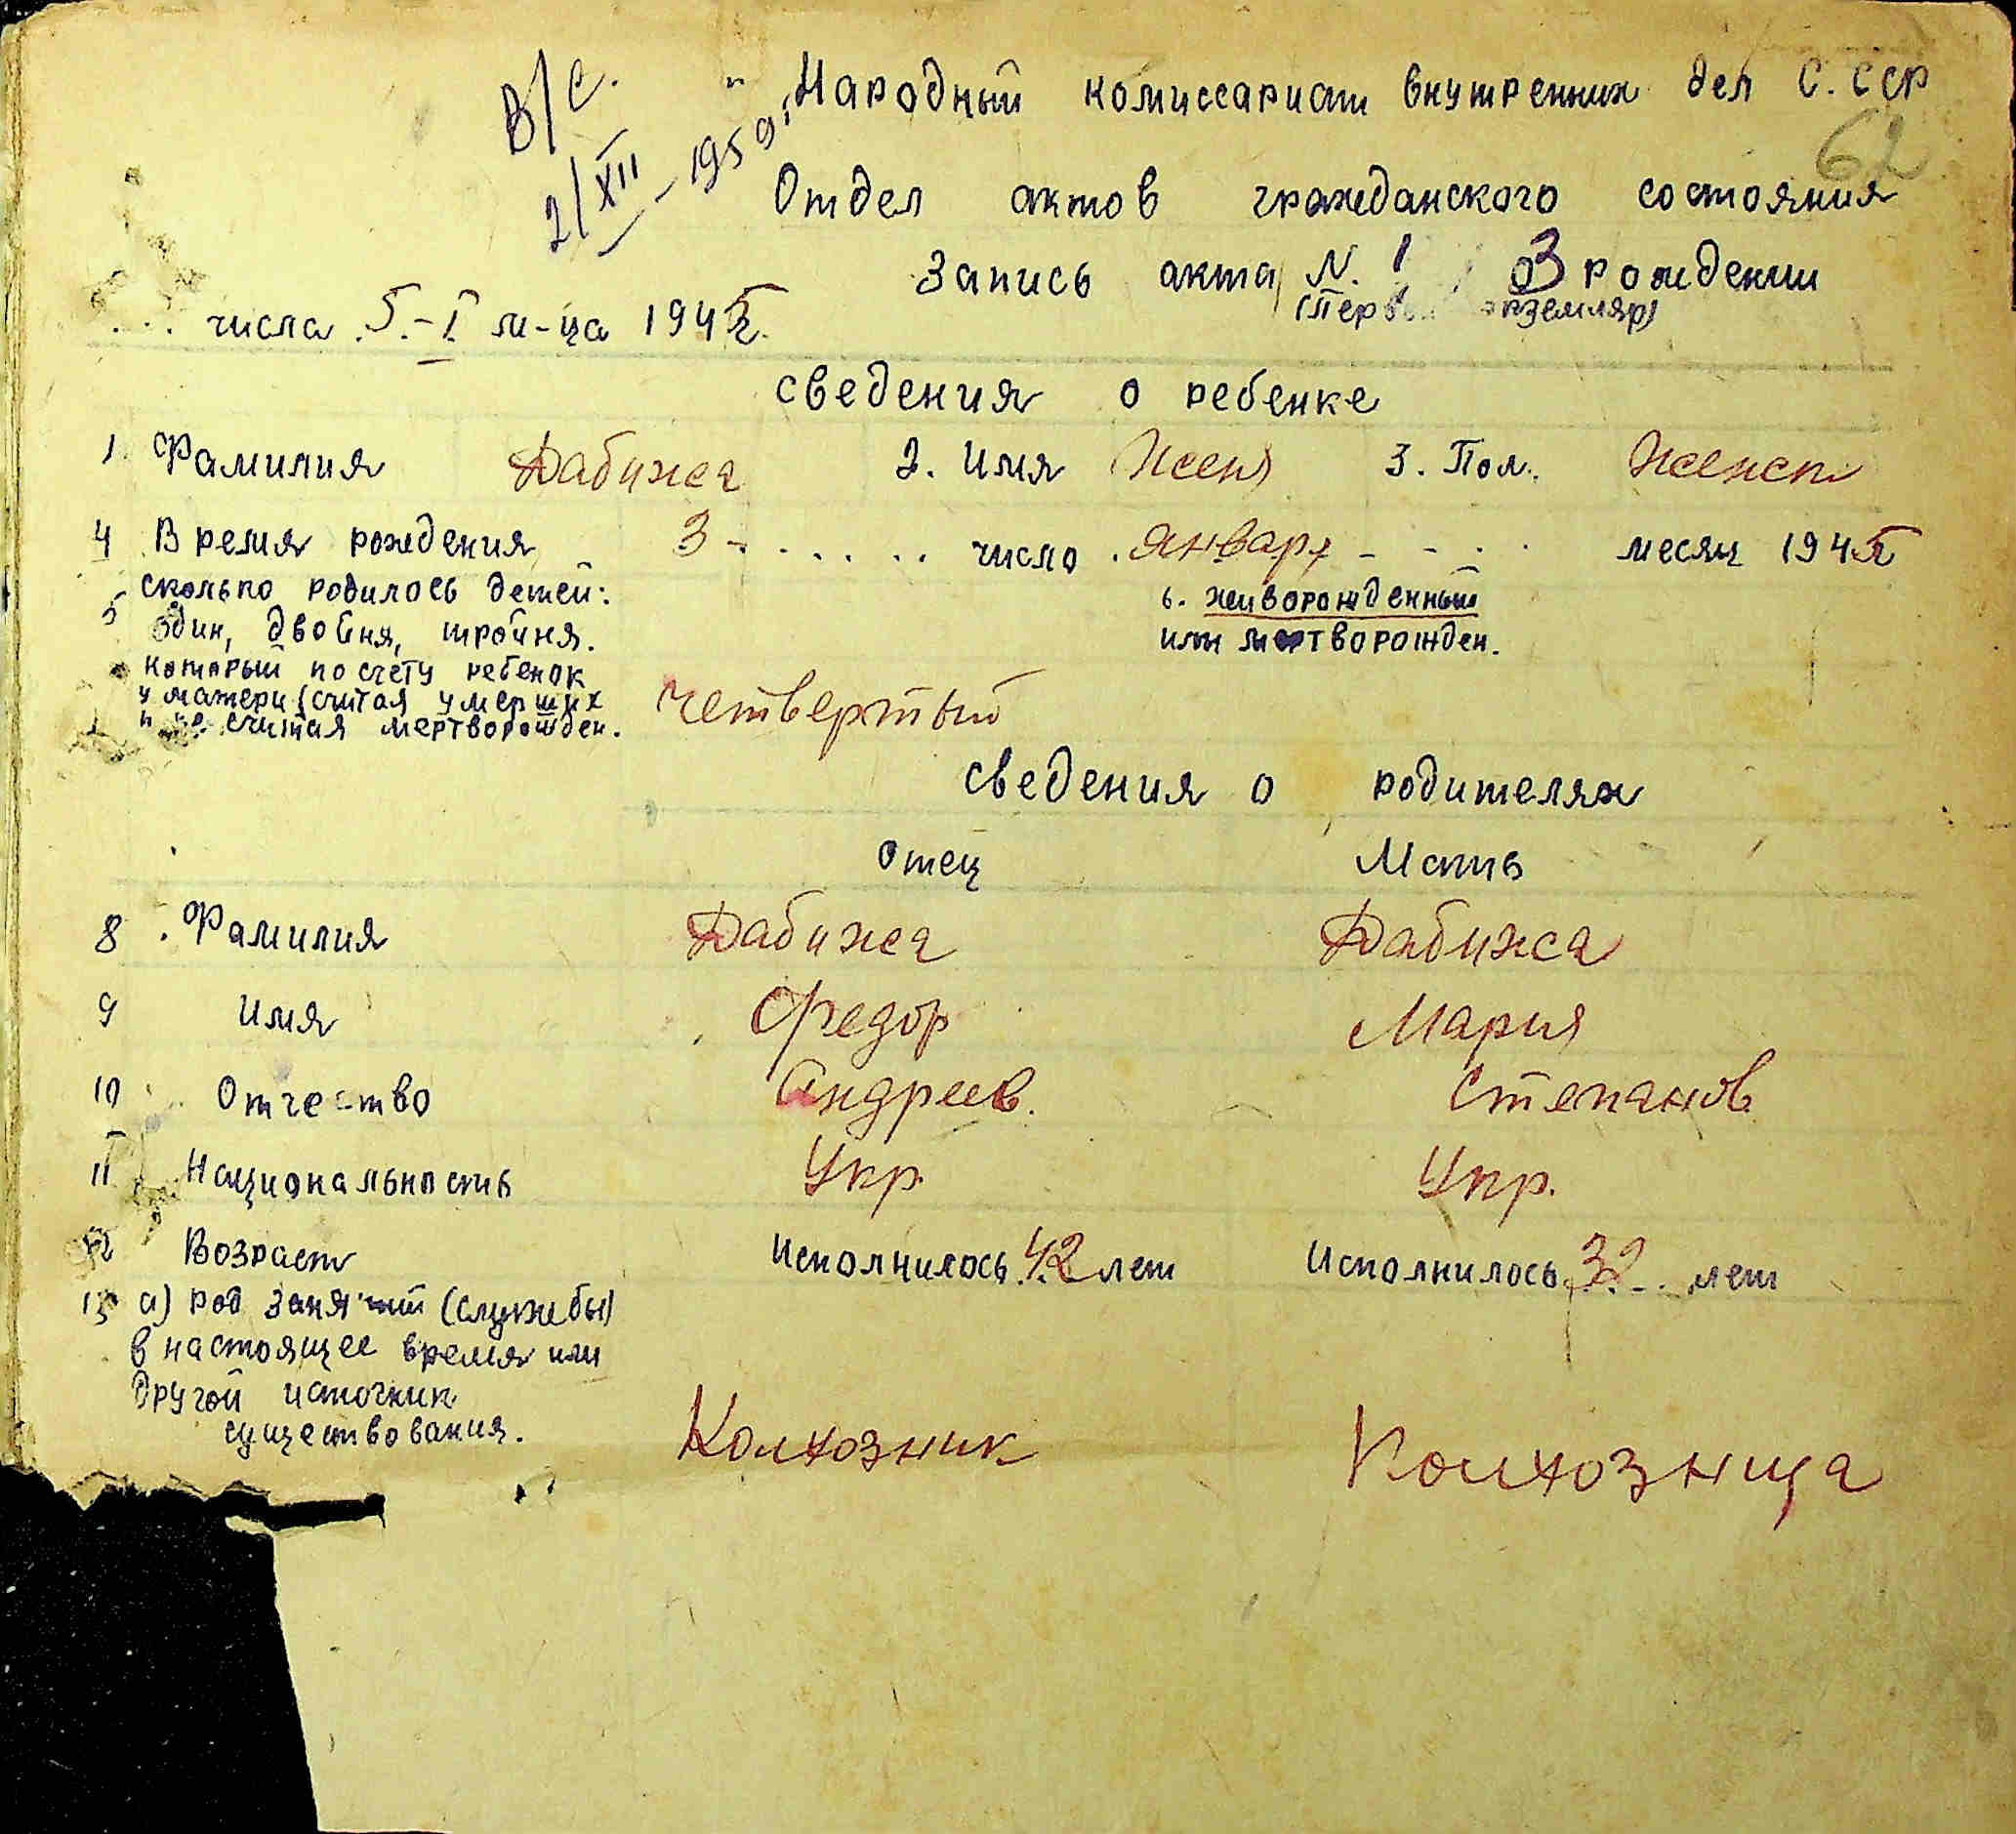 В/С.
2/XII - 1959.
Народный комиссариат внутренних дел С.ССР
62
Отдел актов гражданского состояния
Запись акта N. 1 3 рождении
(Перв экземляр)
числа 5.-I м-ца 1945.
сведения о ребенке
1 Фамилия Дабижа 2. Имя Женя 3. Пол. Женск
4 Время рождения 3 - . . . . . число . Январ - - . . месяц 1945
5 сколько родилось детей:
один, двойня, тройня.
6. живорожденный
или мертворожден.
который по счету ребенок
у матери (считая умерших
и не считая мертворожден.
четвертый
сведения о родителях
Отец Мать
8 . Фамилия Дабижа Дабижа
9 Имя Федор Мария
10 Отчество Андреев. Степанов
11 Национальность Укр. Укр.
12 Возраст Исполнилось 42 лет Исполнилось 32 лет
13 а) род занятий (службы)
в настоящее время или
другой источник
существования.
Колхозник Колхозница